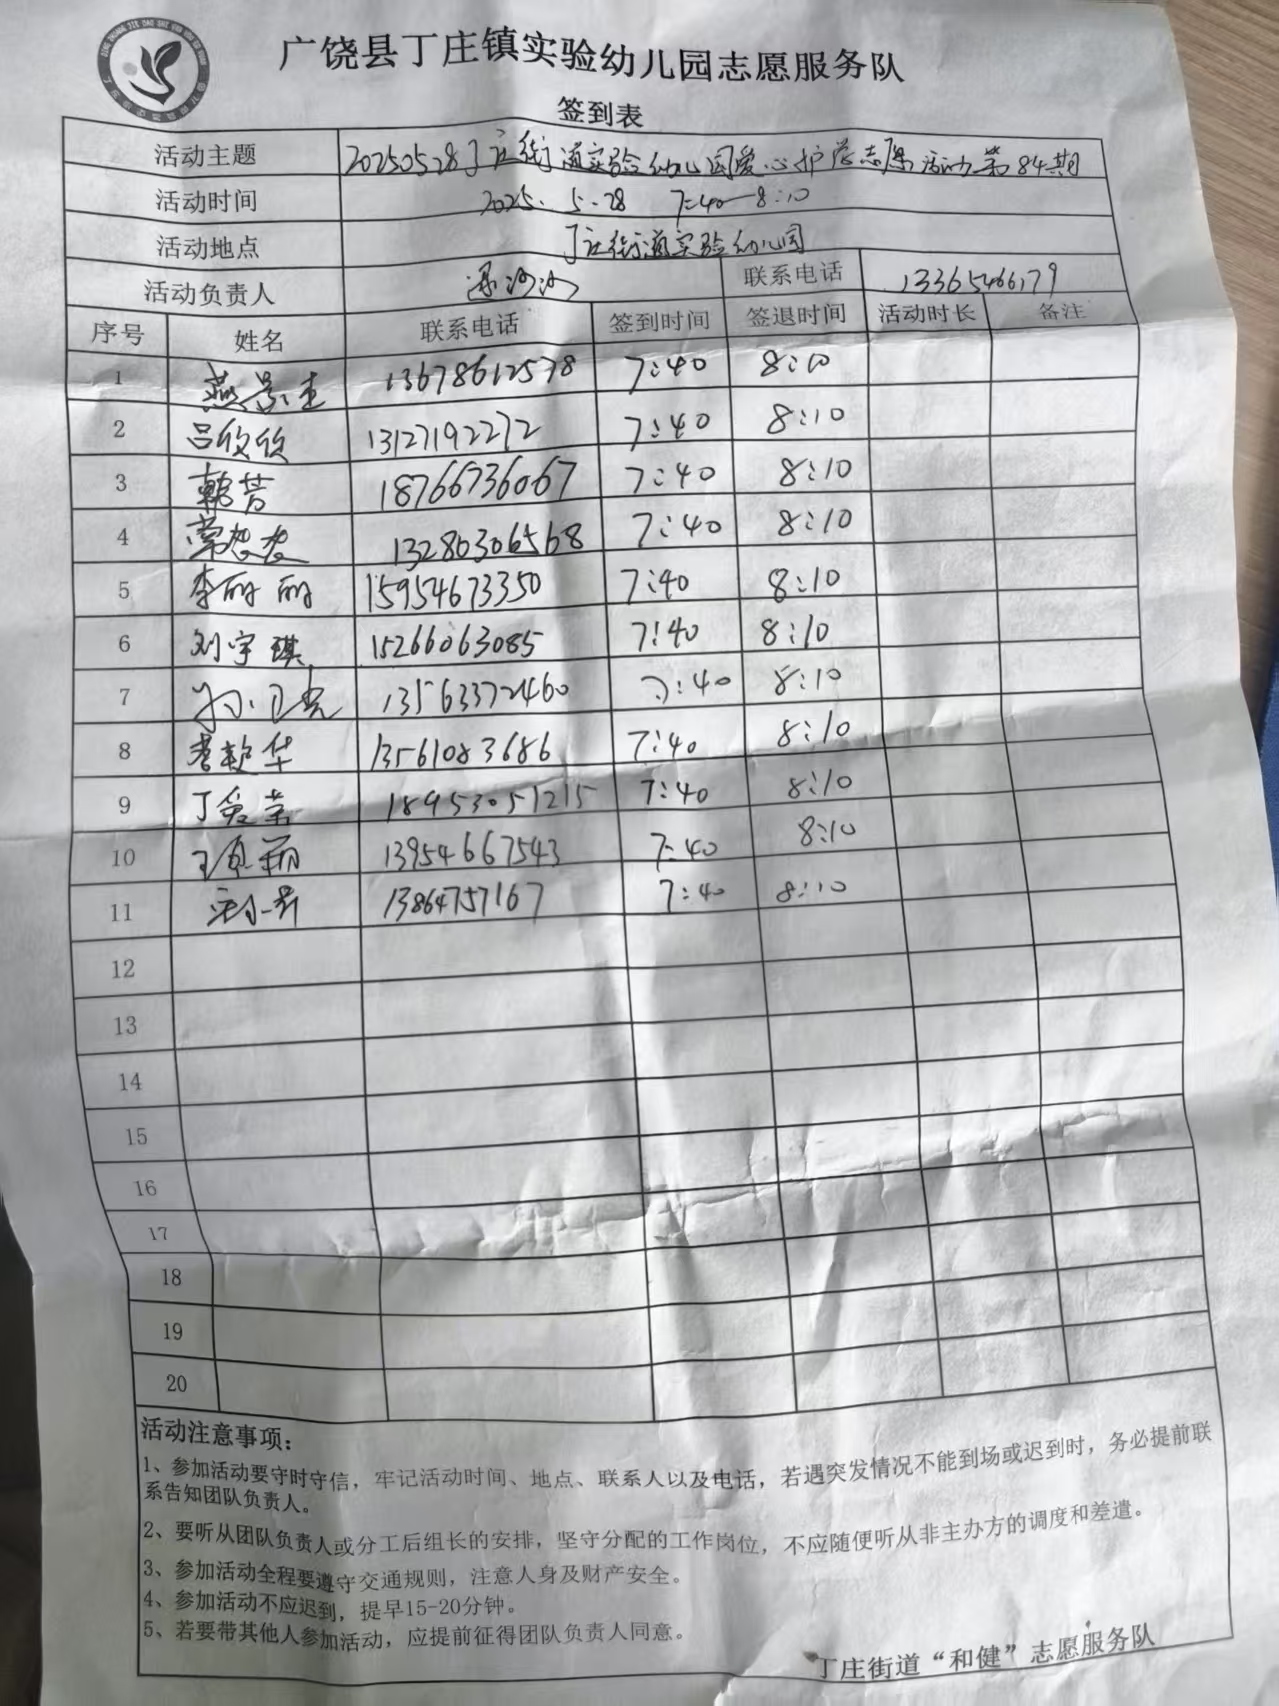 广饶县丁庄镇实验幼儿园志愿服务队
签到表
活动主题 20250528丁庄街道实验幼儿园爱心护学志愿活动第84期
活动时间 2025.5.28 7:40-8:10
活动地点 丁庄街道实验幼儿园
活动负责人 梁沙沙 联系电话 13365466179
序号 姓名 联系电话 签到时间 签退时间 活动时长 备注
1 燕景圭 13678612578 7:40 8:10
2 吕欣欣 13127192272 7:40 8:10
3 韩芳 18766736067 7:40 8:10
4 常 13280306568 7:40 8:10
5 李丽丽 15954673350 7:40 8:10
6 刘宇琪 15266063085 7:40 8:10
7 13563372460 7:40 8:10
8 华 13561083686 7:40 8:10
9 丁爱荣 18953051215 7:40 8:10
10 王 丽 13954667543 7:40 8:10
11 13864757167 7:40 8:10
12
13
14
15
16
17
18
19
20
活动注意事项：
1、参加活动要守时守信，牢记活动时间、地点、联系人以及电话，若遇突发情况不能到场或迟到时，务必提前联
系告知团队负责人。
2、要听从团队负责人或分工后组长的安排，坚守分配的工作岗位，不应随便听从非主办方的调度和差遣。
3、参加活动全程要遵守交通规则，注意人身及财产安全。
4、参加活动不应迟到，提早15-20分钟。
5、若要带其他人参加活动，应提前征得团队负责人同意。
丁庄街道“和健”志愿服务队